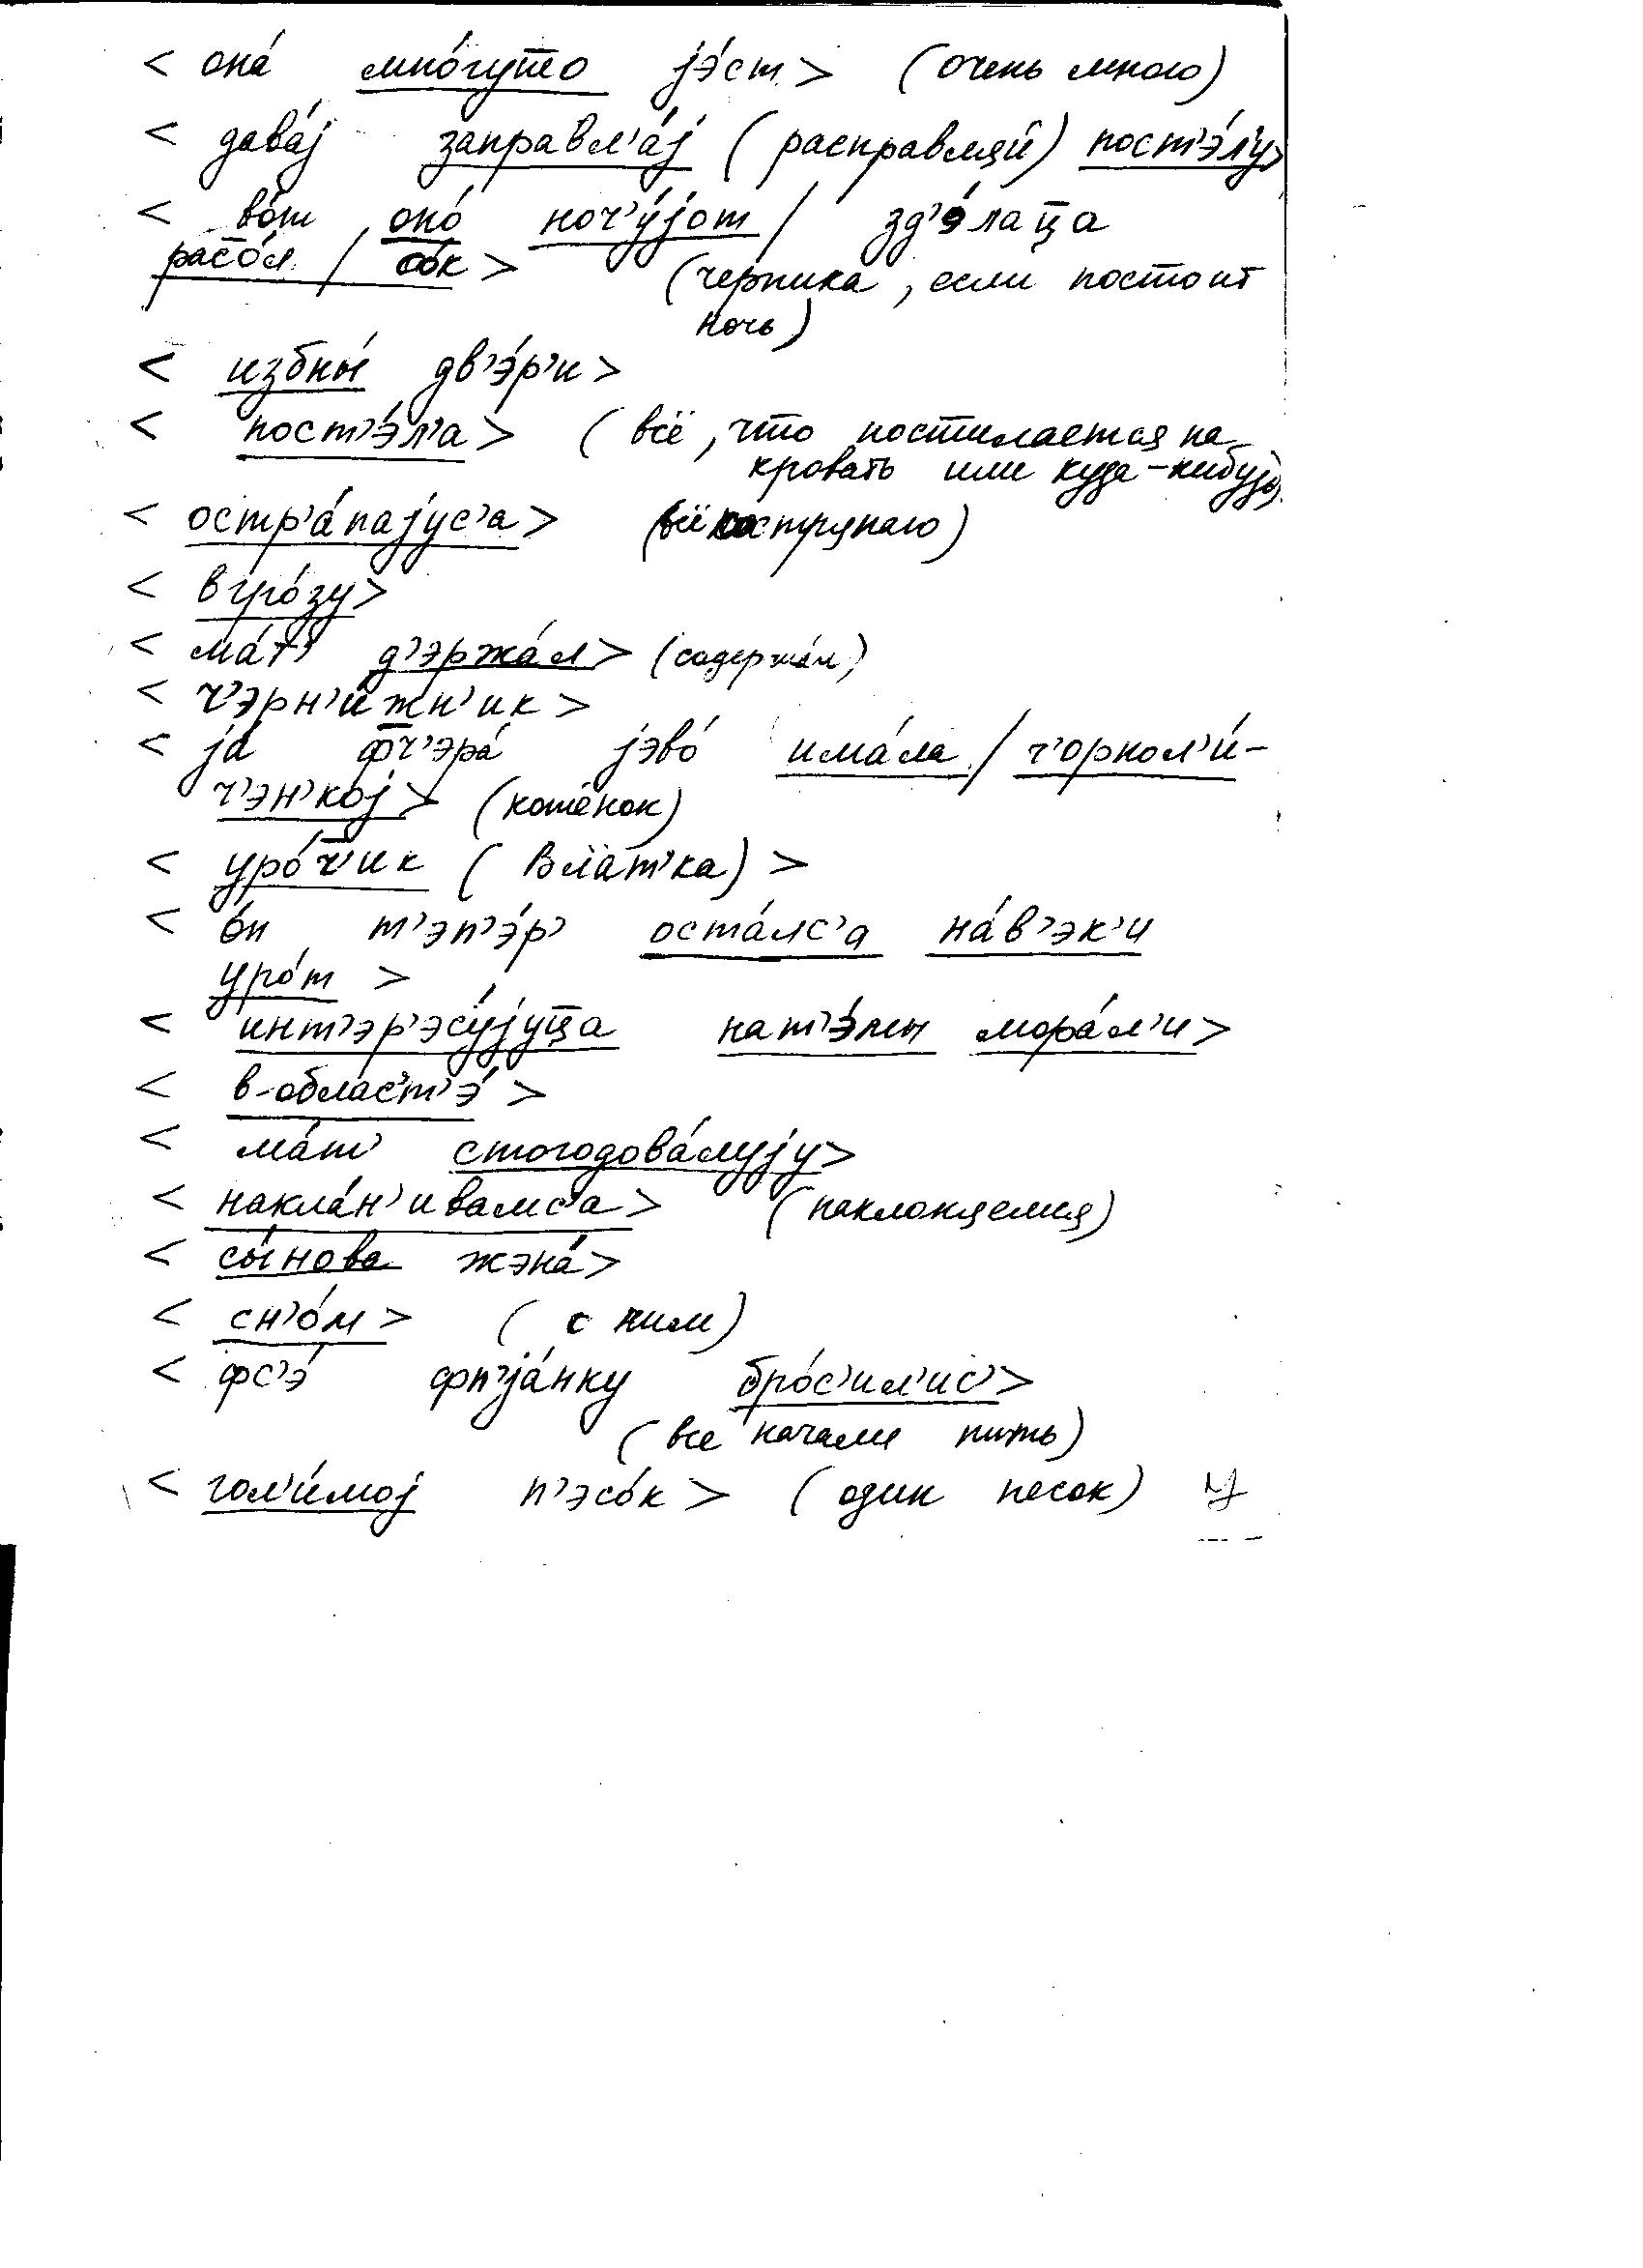 < она́ мно́гуто jэ́ст > (очень много)
< дава́j заправл'а́j (расправляй) пост'э́л'у >
< во́т оно́ ноч'у́jот / зд'э́лац̅а
расо́л / со́к > (черника, если постоит
ночь)
< избны́ дв'э́р'и >
< пост'э́л'а > (всё, что постилается на
кровать или куда-нибудь)
< остр'а́паjус'а > (всё состряпаю)
< вгро́зу >
< ма́т' д'эржа́л > (содержал)
< ч'эрн'и́жн'ик >
< jа́ фч'эра́ jэво́ има́ла / ч'орнол'и́-
ч'эн'коj > (котёнок)
< уро́ч̅'ик (Вл'ат'ка) >
< о́н т'эп'э́р' оста́лс'а на́в'эк'и
уро́т >
< инт'эр'эсу́jуц̅а нат'э́мы мора́л'и >
< в-област'э́ >
< ма́т' стогодова́луjу >
< накла́н'ивамс'а > (наклоняемся)
< сы́нова жэна́ >
< сн'о́м > (с ним)
< фс'э́ фп'jа́нку бро́с'ил'ис' >
(все начали пить)
< гол'и́моj п'эсо́к > (один песок)